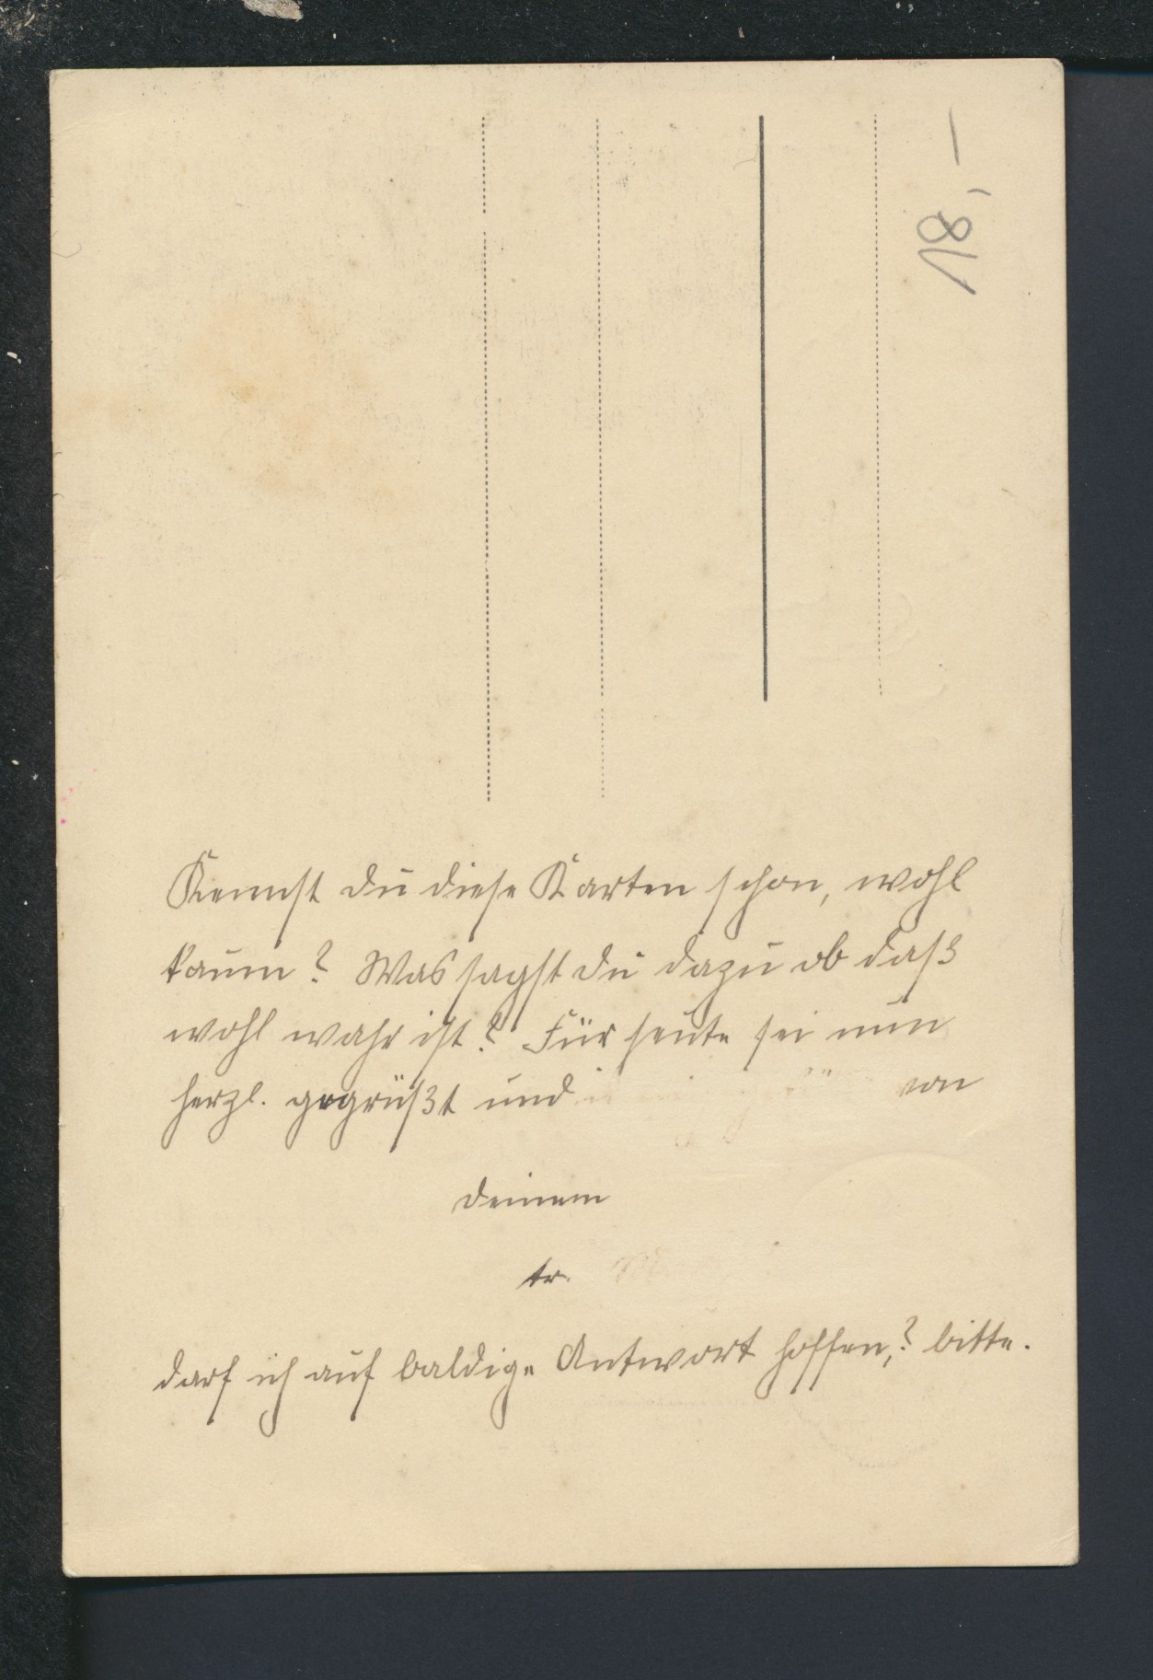 18,–
Kennst du diese Karten schon, wohl
kaum? Was sagst du dazu ob daß
wohl wahr ist? Für heute sei nun
herzl. gegrüßt und von
deinem
tr.
darf ich auf baldige Antwort hoffen,? bitte.